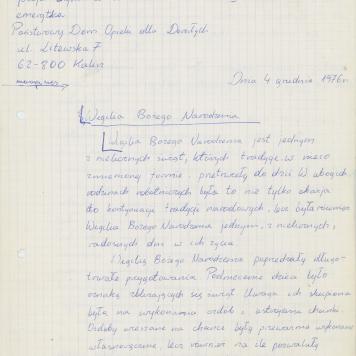 emerytka
Państwowy Dom Opieki dla Dorosłych
ul. Litewska 7
62-800 Kalisz
Dnia 4 grudnia 1976 r.
Wigilia Bożego Narodzenia
Wigilia Bożego Narodzenia jest jednym
z nielicznych świąt, których tradycje w nieco
zmienionej formie przetrwały do dziś. W ubogich
rodzinach robotniczych była to nie tylko okazja
do kontynuacji tradycji narodowych, lecz była również
Wigilia Bożego Narodzenia jednym, z nielicznych,
radosnych dni w ich życiu.
Wigilię Bożego Narodzenia poprzedzały długo-
trwałe przygotowania. Podniecenie dzieci było
oznaką zbliżających się świąt. Uwaga ich skupiona
była na wykonaniu ozdób i ustrojeniu choinki.
Ozdoby wieszane na choince były przeważnie wykonane
własnoręcznie, lecz również na ile pozwalały